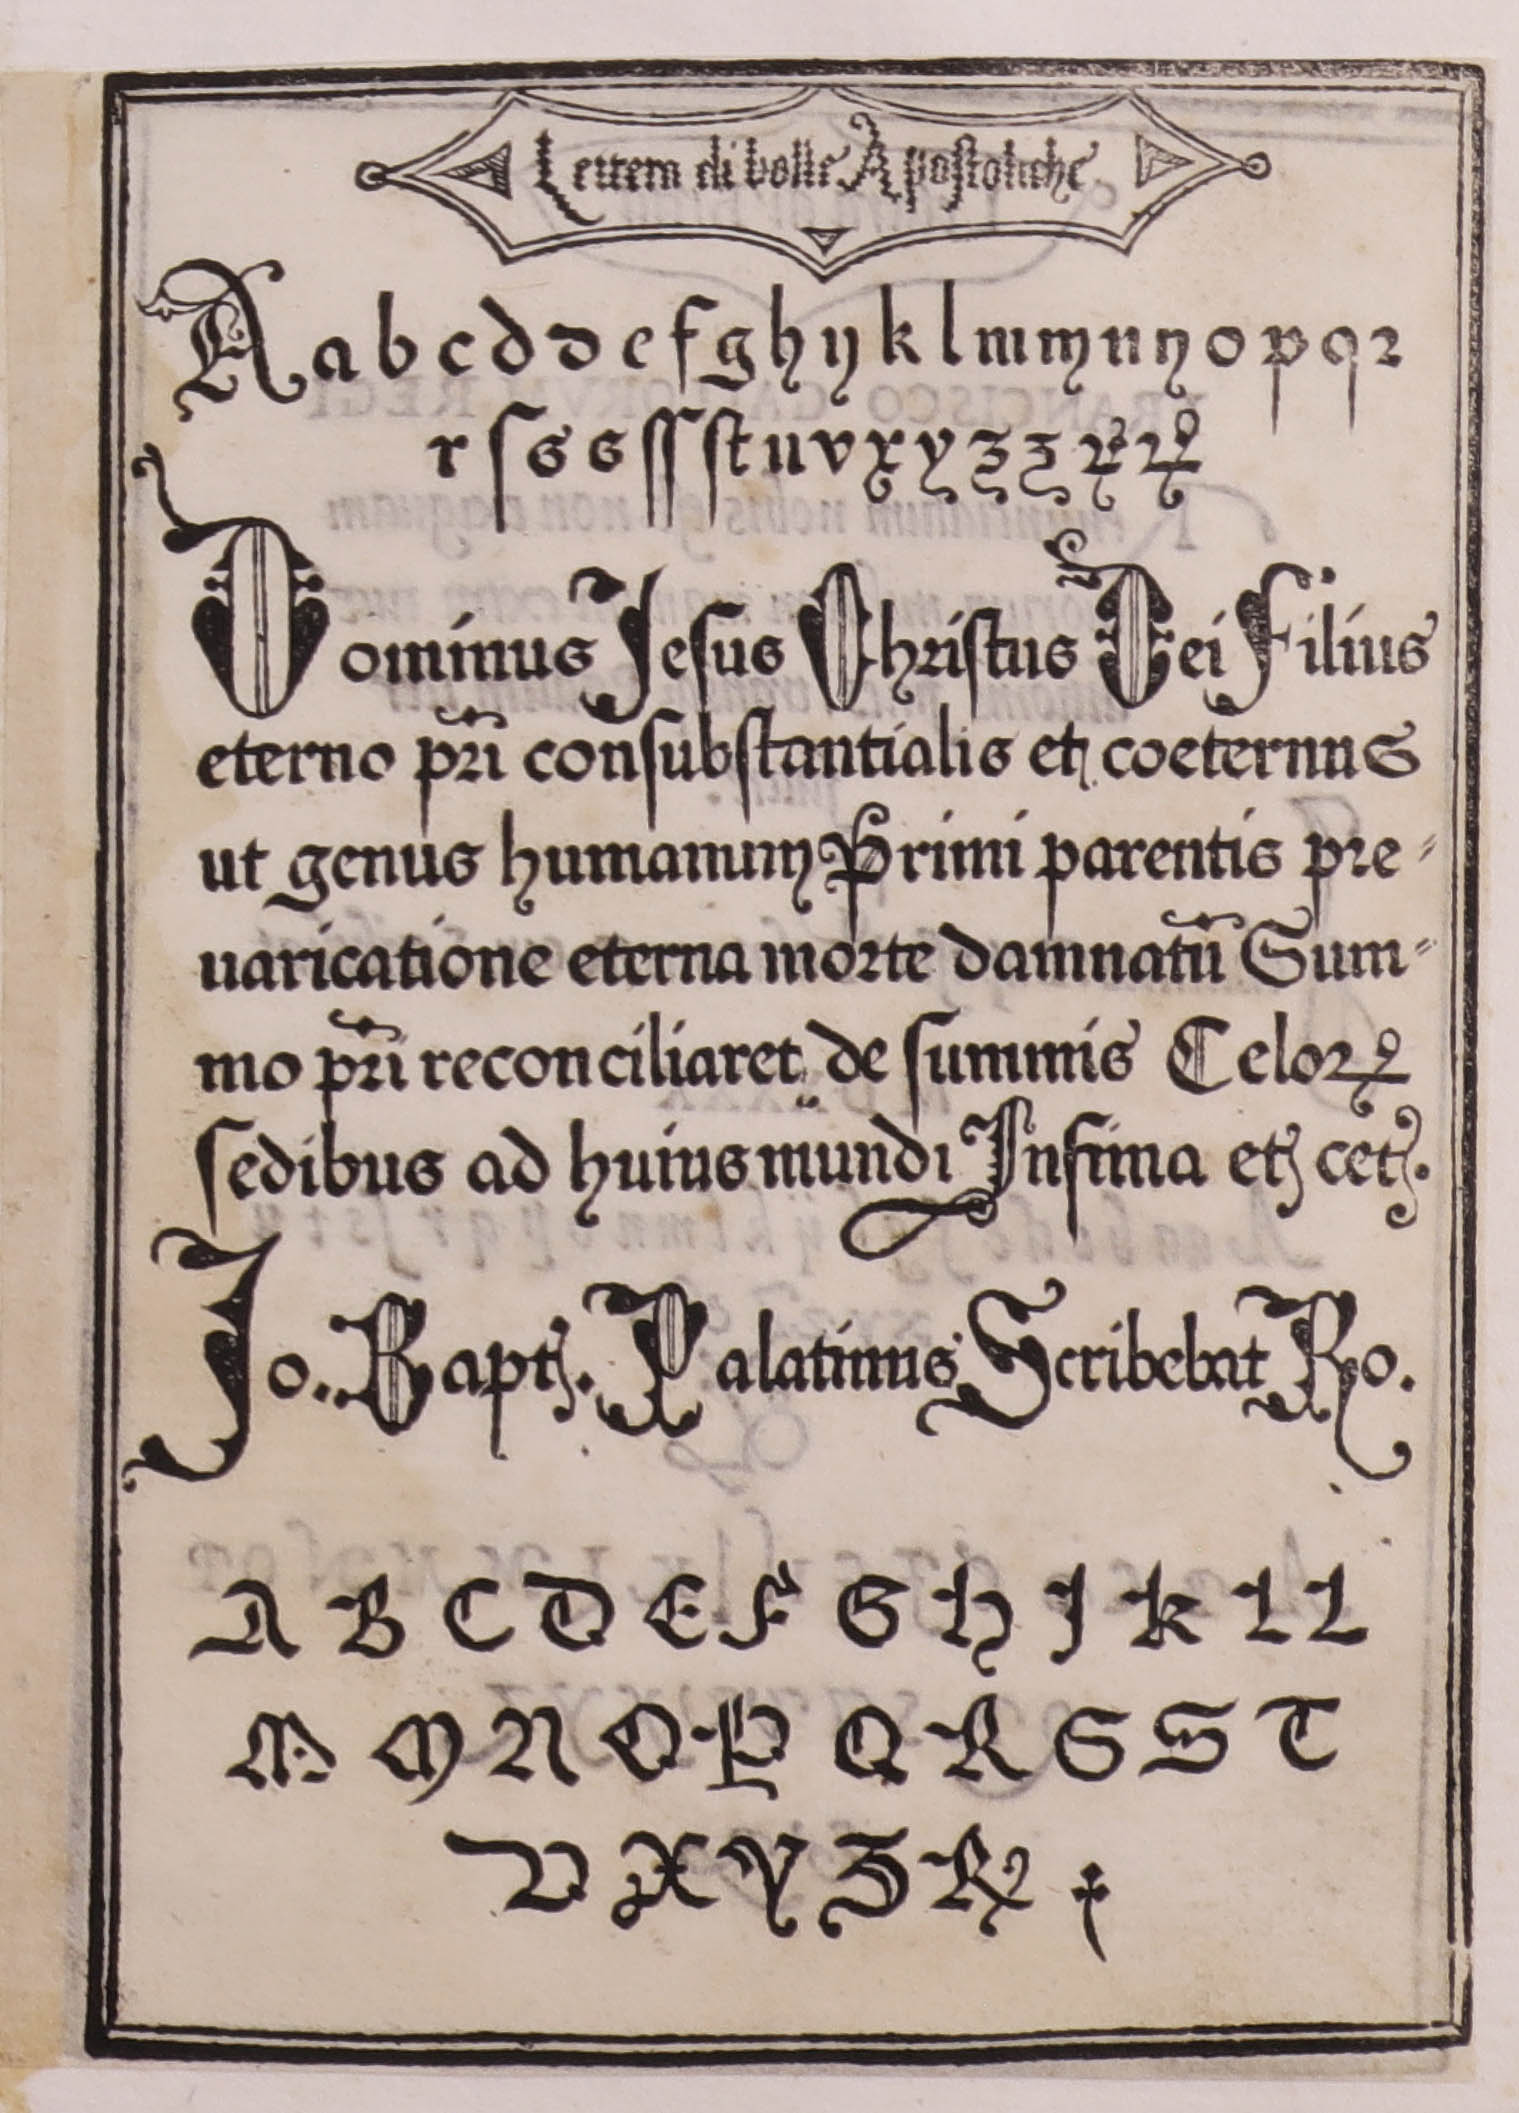 Lettera di bolle Apostoliche
A a b c d d e f g h ij k l m m n n o p q ꝛ
r ſ s s ſſ ſt u v x y z z ꝝ ꝝ
Dominus Jesus Chriſtus Dei Filius
eterno pr̃i conſubſtantialis et coeternus
ut genus humanum Primi parentis pre⸗
uaricatione eterna moꝛte damnatũ Sum⸗
mo pr̃i reconciliaret de ſummis Celoꝝ
ſedibus ad huius mundi Infima et cet.
Jo. Bapt. Palatinus Scribebat Ro.
A B C D E F G H I K L L
M M N O P Q R S S T
V X Y Z Ꝝ